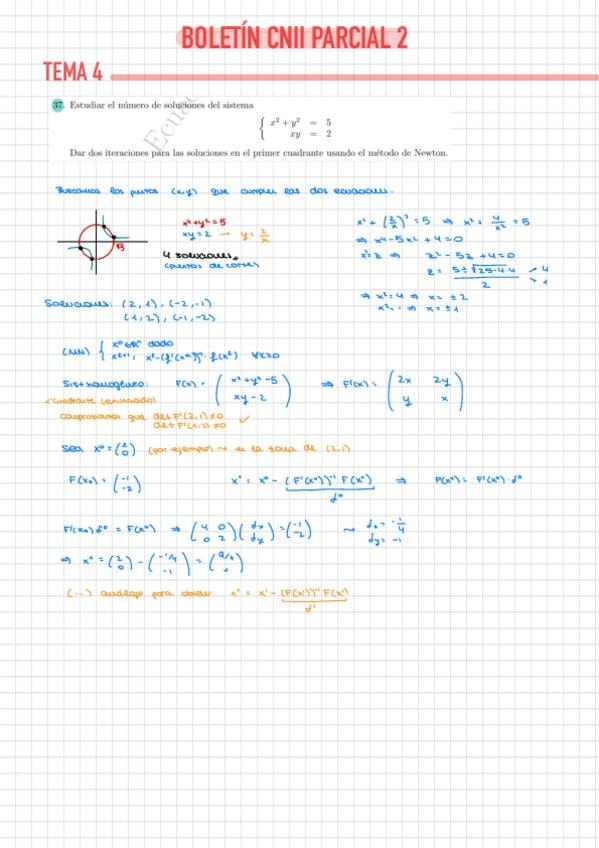 BOLETÍN CNII PARCIAL 2
TEMA 4
37. Estudiar el número de soluciones del sistema
{ x² + y² = 5
xy = 2
Dar dos iteraciones para las soluciones en el primer cuadrante usando el método de Newton.
Buscamos los puntos (x,y) que cumplen las dos ecuaciones.
√5
x²+y²=5
xy=2 → y = 2/x
4 soluciones.
(puntos de corte)
x² + (2/x)² = 5 ⇒ x² + 4/x² = 5
⇒ x⁴ - 5x² + 4 = 0
x² = z ⇒ z² - 5z + 4 = 0
z = (5 ± √(25-4·4))/2 → 4
→ 1
⇒ x² = 4 ⇒ x = ± 2
x² = 1 ⇒ x = ± 1
Soluciones: (2,1), (-2,-1)
(1,2), (-1,-2)
(NN) { x⁰ ∈ ℝⁿ dado
xᵏ⁺¹ = xᵏ - (f'(xᵏ))⁻¹ · f(xᵏ) ∀k≥0
Sist homogéneo: F(x) = ( x²+y²-5
xy-2 ) ⇒ F'(x) = ( 2x 2y
y x )
1ᵉʳ cuadrante (enunciado)
comprobamos que det F'(2,1) ≠ 0
det F'(1,2) ≠ 0 ✓
Sea x⁰ = (2
0) (por ejemplo) ~ en la zona de (2,1)
F(x₀) = (-1
-2) x¹ = x⁰ - (F'(x⁰))⁻¹ F(x⁰) ⇒ F(x⁰) = F'(x⁰) · δ⁰
δ⁰
F'(x₀) δ⁰ = F(x⁰) ⇒ (4 0
0 2) (δx
δy) = (-1
-2) ~ δx = -1/4
δy = -1
⇒ x¹ = (2
0) - (-1/4
-1) = (9/4
1)
(...) análogo para obtener x² = x¹ - (F'(x¹))⁻¹ F(x¹)
δ¹